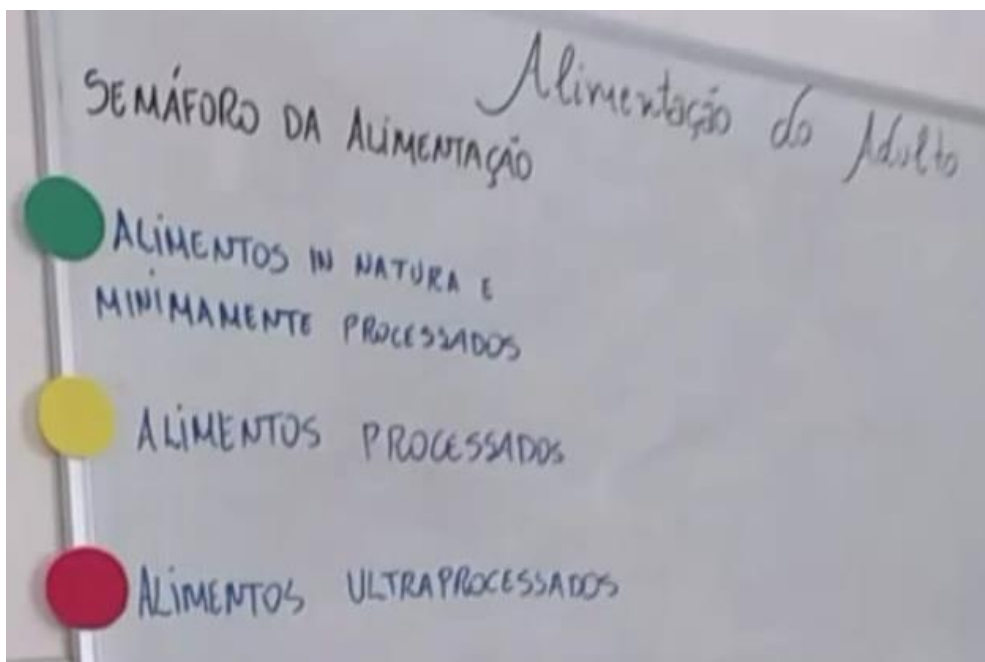 Alimentação do Adulto
SEMÁFORO DA ALIMENTAÇÃO
ALIMENTOS IN NATURA E
MINIMAMENTE PROCESSADOS
ALIMENTOS PROCESSADOS
ALIMENTOS ULTRAPROCESSADOS